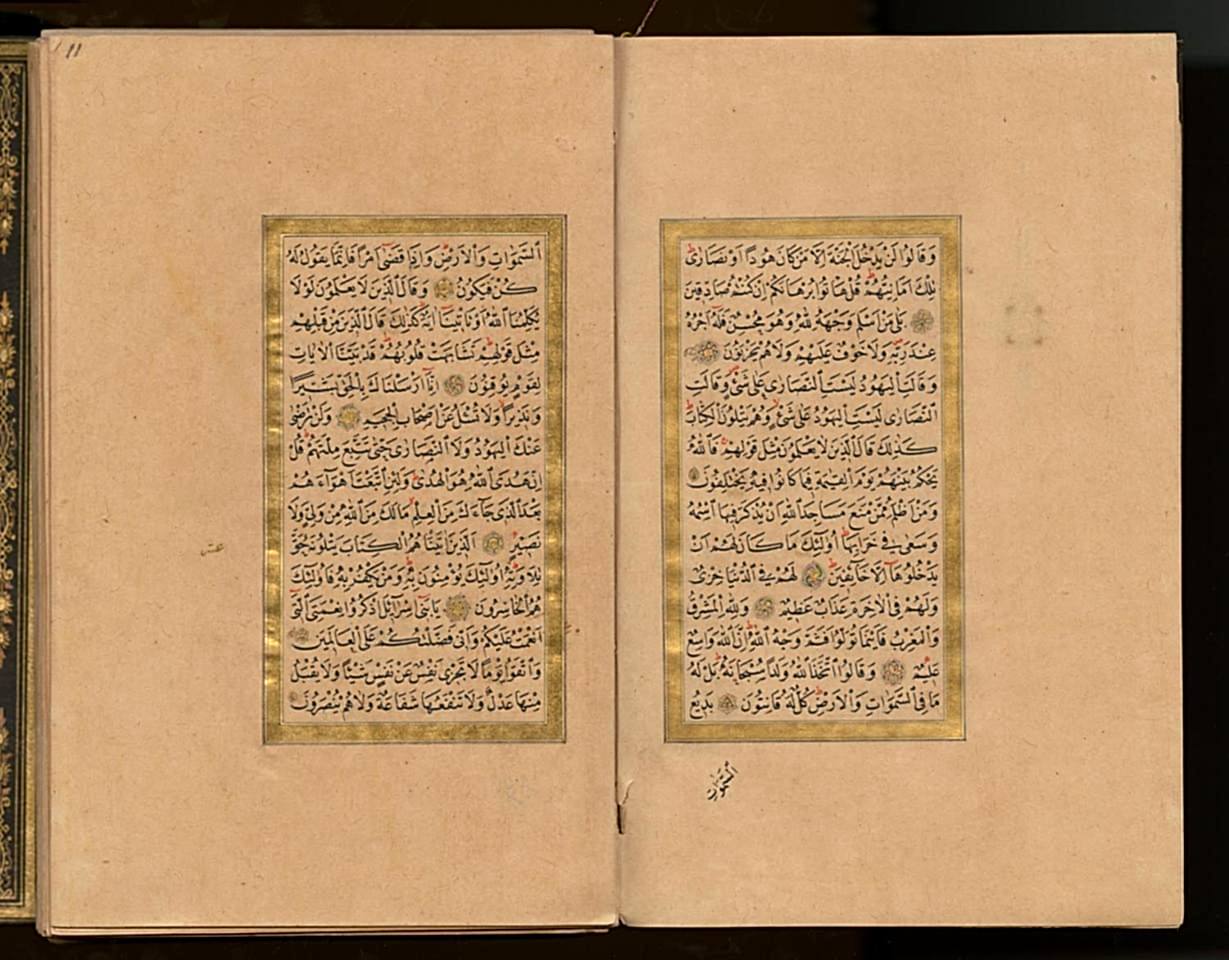 وَقَالُوا لَنْ يَدْخُلَ الْجَنَّةَ اِلَّا مَنْ كَانَ هُودًا اَوْ نَصَارٰى
تِلْكَ اَمَانِيُّهُمْ قُلْ هَاتُوا بُرْهَانَكُمْ اِنْ كُنْتُمْ صَادِقِينَ
بَلٰى مَنْ اَسْلَمَ وَجْهَهُ لِلّٰهِ وَهُوَ مُحْسِنٌ فَلَهُ اَجْرُهُ
عِنْدَ رَبِّهِ وَلَا خَوْفٌ عَلَيْهِمْ وَلَا هُمْ يَحْزَنُونَ
وَقَالَتِ الْيَهُودُ لَيْسَتِ النَّصَارٰى عَلٰى شَيْءٍ وَقَالَتِ
النَّصَارٰى لَيْسَتِ الْيَهُودُ عَلٰى شَيْءٍ وَهُمْ يَتْلُونَ الْكِتَابَ
كَذٰلِكَ قَالَ الَّذِينَ لَا يَعْلَمُونَ مِثْلَ قَوْلِهِمْ فَاللّٰهُ
يَحْكُمُ بَيْنَهُمْ يَوْمَ الْقِيٰمَةِ فِيمَا كَانُوا فِيهِ يَخْتَلِفُونَ
وَمَنْ اَظْلَمُ مِمَّنْ مَنَعَ مَسَاجِدَ اللّٰهِ اَنْ يُذْكَرَ فِيهَا اسْمُهُ
وَسَعٰى فِي خَرَابِهَا اُولٰئِكَ مَا كَانَ لَهُمْ اَنْ
يَدْخُلُوهَا اِلَّا خَائِفِينَ لَهُمْ فِي الدُّنْيَا خِزْيٌ
وَلَهُمْ فِي الْاٰخِرَةِ عَذَابٌ عَظِيمٌ وَلِلّٰهِ الْمَشْرِقُ
وَالْمَغْرِبُ فَاَيْنَمَا تُوَلُّوا فَثَمَّ وَجْهُ اللّٰهِ اِنَّ اللّٰهَ وَاسِعٌ
عَلِيمٌ وَقَالُوا اتَّخَذَ اللّٰهُ وَلَدًا سُبْحَانَهُ بَلْ لَهُ
مَا فِي السَّمٰوَاتِ وَالْاَرْضِ كُلٌّ لَهُ قَانِتُونَ بَدِيعُ
السَّمٰوَاتِ
١١
السَّمٰوَاتِ وَالْاَرْضِ وَاِذَا قَضٰى اَمْرًا فَاِنَّمَا يَقُولُ لَهُ
كُنْ فَيَكُونُ وَقَالَ الَّذِينَ لَا يَعْلَمُونَ لَوْلَا
يُكَلِّمُنَا اللّٰهُ اَوْ تَاْتِينَا اٰيَةٌ كَذٰلِكَ قَالَ الَّذِينَ مِنْ قَبْلِهِمْ
مِثْلَ قَوْلِهِمْ تَشَابَهَتْ قُلُوبُهُمْ قَدْ بَيَّنَّا الْاٰيَاتِ
لِقَوْمٍ يُوقِنُونَ اِنَّا اَرْسَلْنَاكَ بِالْحَقِّ بَشِيرًا
وَنَذِيرًا وَلَا تُسْئَلُ عَنْ اَصْحَابِ الْجَحِيمِ وَلَنْ تَرْضٰى
عَنْكَ الْيَهُودُ وَلَا النَّصَارٰى حَتّٰى تَتَّبِعَ مِلَّتَهُمْ قُلْ
اِنَّ هُدَى اللّٰهِ هُوَ الْهُدٰى وَلَئِنِ اتَّبَعْتَ اَهْوَاءَهُمْ
بَعْدَ الَّذِي جَاءَكَ مِنَ الْعِلْمِ مَا لَكَ مِنَ اللّٰهِ مِنْ وَلِيٍّ وَلَا
نَصِيرٍ اَلَّذِينَ اٰتَيْنَاهُمُ الْكِتَابَ يَتْلُونَهُ حَقَّ
تِلَاوَتِهِ اُولٰئِكَ يُؤْمِنُونَ بِهِ وَمَنْ يَكْفُرْ بِهِ فَاُولٰئِكَ
هُمُ الْخَاسِرُونَ يَا بَنِي اِسْرَائِلَ اذْكُرُوا نِعْمَتِيَ الَّتِي
اَنْعَمْتُ عَلَيْكُمْ وَاَنِّي فَضَّلْتُكُمْ عَلَى الْعَالَمِينَ
وَاتَّقُوا يَوْمًا لَا تَجْزِي نَفْسٌ عَنْ نَفْسٍ شَيْئًا وَلَا يُقْبَلُ
مِنْهَا عَدْلٌ وَلَا تَنْفَعُهَا شَفَاعَةٌ وَلَا هُمْ يُنْصَرُونَ
عشر